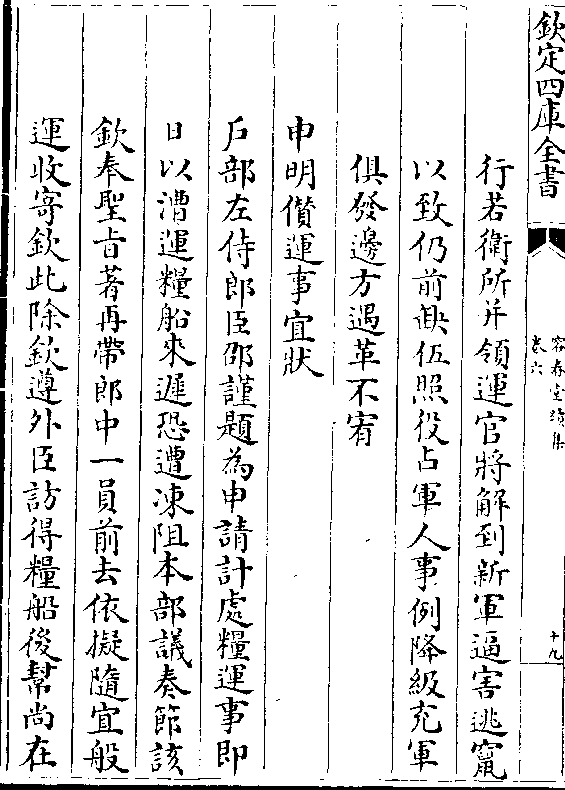 欽定四庫全書
容春堂續集
卷六
十九
行若衛所并領運官將解到新軍逼害逃竄
以致仍前缺伍照役占軍人事例降級充軍
俱發邊方遇革不宥
申明儹運事宜狀
戶部左侍郎臣邵謹題為申請計處糧運事即
日以漕運糧船來遲恐遭凍阻本部議奏節該
欽奉聖旨著再帶郎中一員前去依擬隨宜般
運收寄欽此除欽遵外臣訪得糧船後幫尚在